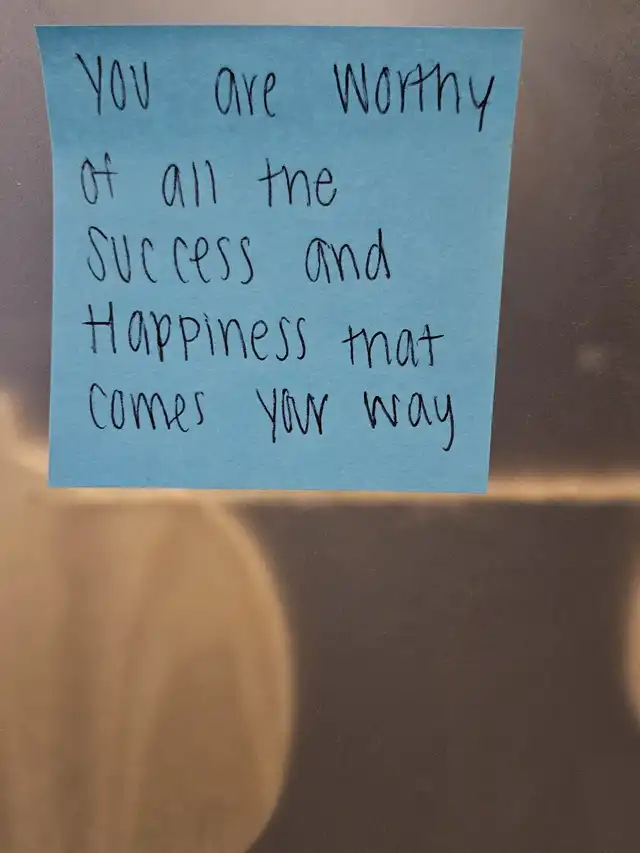 You are Worthy
of all the
success and
Happiness that
comes your way